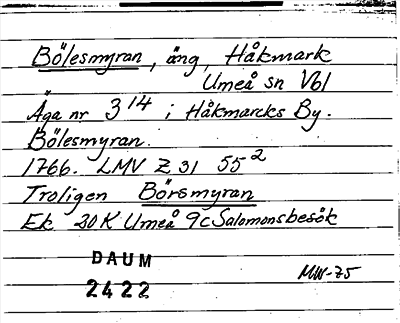 Bölesmyran, äng, Håkmark
Umeå sn Vbl
Äga nr 3 14 i Håkmarcks By.
Bölesmyran.
1766. LMV Z 31 55²
Troligen Börsmyran
Ek 20K Umeå 9c Salomonsbesök
DAUM
2422
MW-75